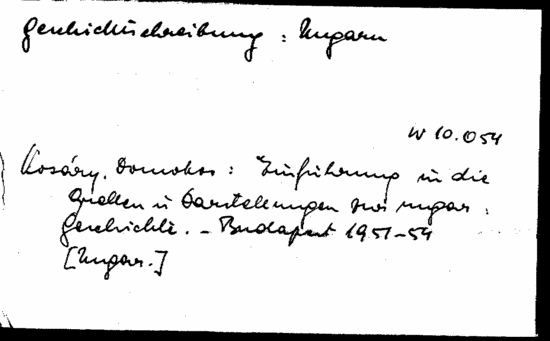 Geschichtschreibung : Ungarn
W 10.054
Kosáry, Domokos : Einführung in die
Quellen u Darstellungen zur ungar.
Geschichte. - Budapest 1951-54
[Ungar.]